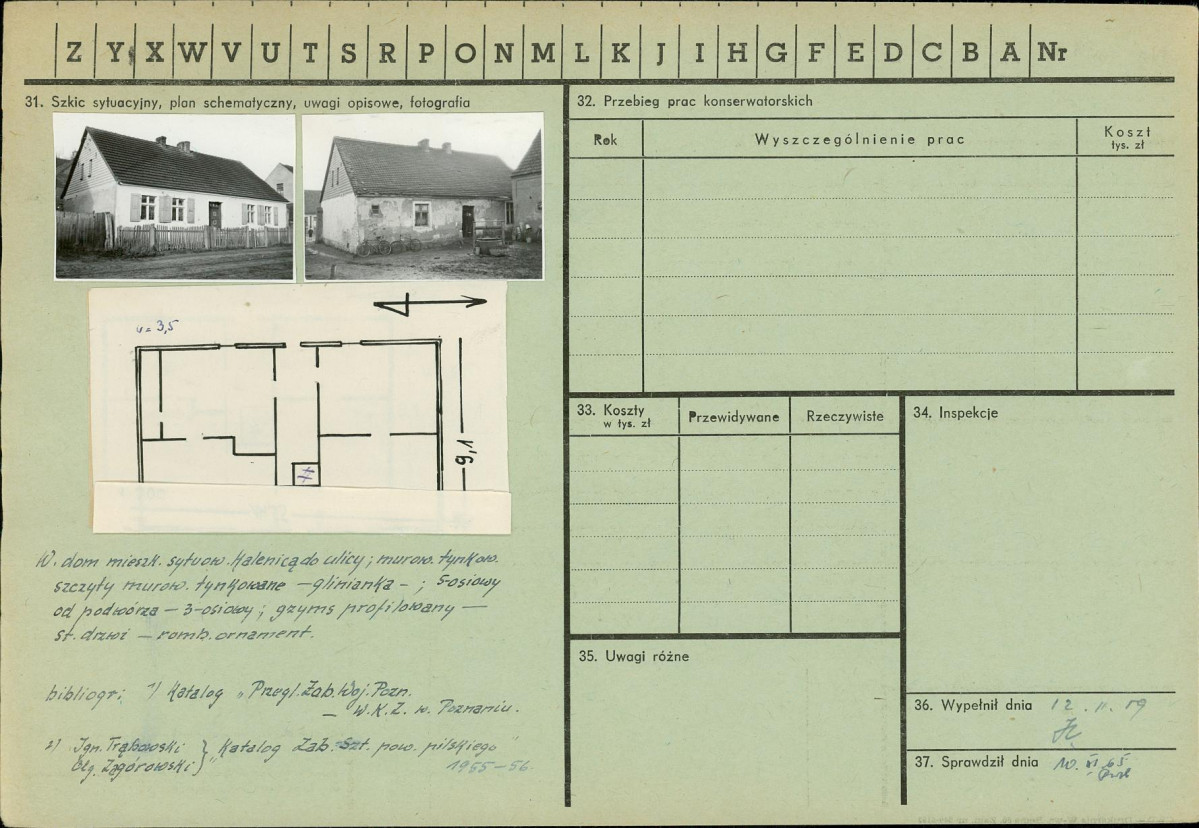 Z Y X W V U T S R P O N M L K J I H G F E D C B A Nr
31. Szkic sytuacyjny, plan schematyczny, uwagi opisowe, fotografia
= 3,5
9,1
W. dom mieszk. sytuow. kalenicą do ulicy; murow. tynkow.
szczyty murow. tynkowane – glinianka - ; 5-osiowy
od podwórza – 3-osiowy; gzyms profilowany –
st. drzwi – romb. ornament.
bibliogr: 1) Katalog „Przegl. Zab. Woj. Pozn.
– W.K.Z. w. Poznaniu.
2) Ign. Trąbowski } „Katalog Zab. Szt. pow. pilskiego"
Olg. Zagórowski } 1955–56.
32. Przebieg prac konserwatorskich
Rok
Wyszczególnienie prac
Koszt
tys. zł
33. Koszty
w tys. zł
Przewidywane
Rzeczywiste
34. Inspekcje
35. Uwagi różne
36. Wypełnił dnia 12. II. 59
37. Sprawdził dnia 10. XI 65